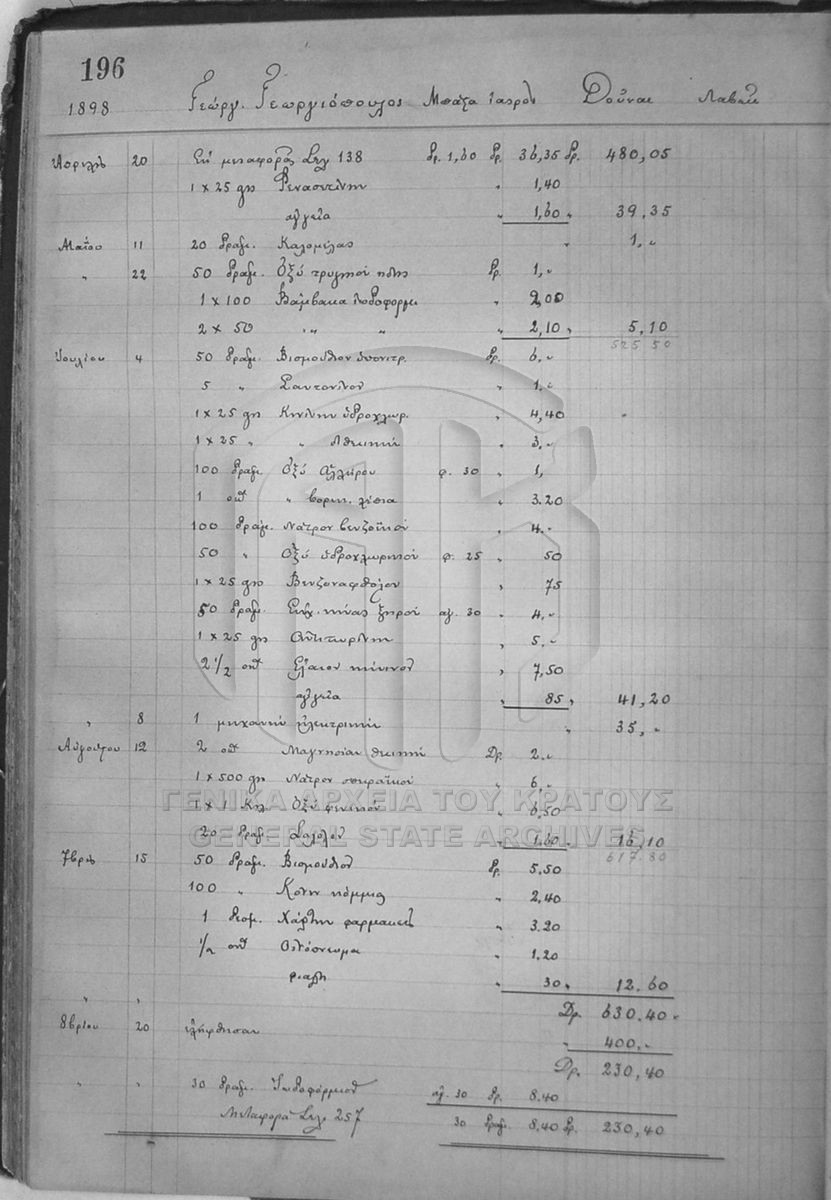 196
1898 Γεώργ. Γεωργιόπουλος Μπάζα Ιατρός Δοῦναι Λαβεῖν
Ἀπριλίου 20 Ἐκ μεταφορᾶς Σελ 138 δρ. 1,60 δρ. 36,35 δρ. 480,05
1 x 25 gm Φενασετίνην " 1,40
ἀγγεῖα " 1,60 " 39,35
Μαΐου 11 20 δραμ. Καλομέλας " 1, "
" 22 50 δραμ. Ὀξύ τρυγικόν δρ. 1, "
1 x 100 Βάμβακα ἰωδοφορμ " 2,00
2 x 50 " " " 2,10 " 5,10
525 50
Ἰουλίου 4 50 δραμ. Βισμούθιον ὑπονιτρ. δρ. 6, "
5 " Σαντονίνον " 1, "
1 x 25 gm Κινίνην ὑδροχλωρ. " 4,40
1 x 25 " " θειικήν " 3, "
100 δραμ Ὀξύ φ. 30 " 1,
1 ὀκ " βορικ. λέπια " 3.20
100 δραμ. Νάτρον βενζοϊκόν " 4. "
50 " Ὀξύ ὑδροχλωρικόν φ. 25 " 50
1 x 25 gm Βενζοναφθόλον " 75
50 δραμ. Ἐκχ. κίνας ξηρόν ἀγ. 30 " 4. "
1 x 25 gm Ἀντιπυρίνην " 5. "
2 1/2 ὀκ Ἔλαιον κίκινον " 7,50
ἀγγεῖα " 85 " 41,20
" 8 1 μηχανήν ἠλεκτρικήν " 35, "
Αὐγούστου 12 2 ὀκ Μαγνησίαν θειικήν Δρ. 2. "
1 x 500 gm Νάτρον " 6, "
1 x 1 Κιλ Ὀξύ φενικόν " 6,50
20 δραμ. Σαλόλον " 1,60 " 16,10
617.80
7βρίου 15 50 δραμ. Βισμούθιον δρ. 5.50
100 " Κόνιν κόμμεως " 2,40
1 δεσμ. Χάρτην φαρμακευτ " 3.20
1/2 ὀκ Οἰνόπνευμα " 1.20
φιάλη " 30 " 12.60
" " Δρ. 630.40 "
8βρίου 20 ἐλήφθησαν " 400, "
Δρ. 230,40
" " 30 δραμ. Ἰωδοφόρμιον ἀγ. 30 δρ. 8.40
Μεταφορά Σελ. 257 30 δραμ. 8.40 δρ. 230,40
ΓΕΝΙΚΑ ΑΡΧΕΙΑ ΤΟΥ ΚΡΑΤΟΥΣ
GENERAL STATE ARCHIVES